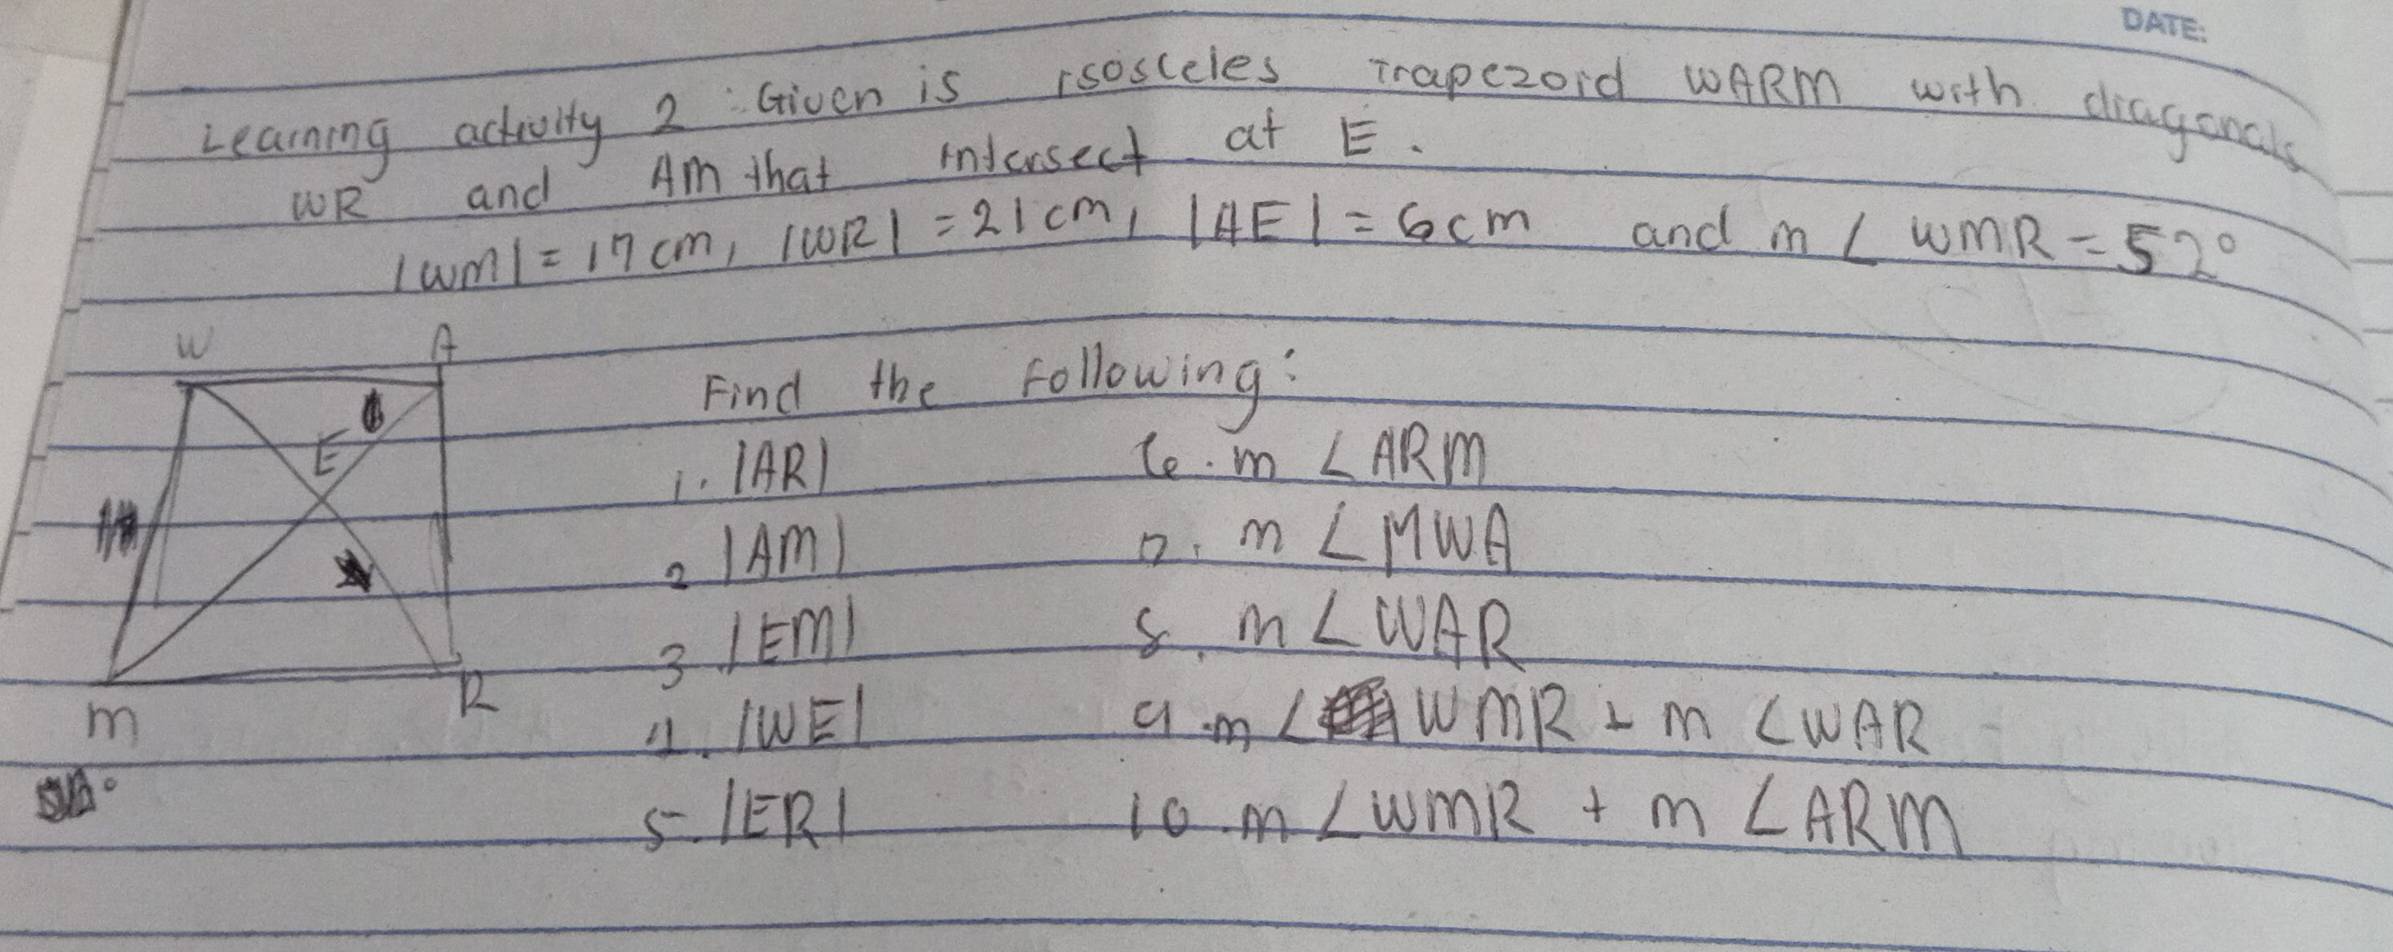 DATE:
Learning activity 2: Given is isosceles Trapezoid WARM with diagonals
WR and AM that intersect at E.
|WM| = 17 cm, |WR| = 21 cm, |AE| = 6 cm and m ∠ WMR = 52°
W A
Find the following:
E
1. |AR| 6. m ∠ ARM
2 |AM| 7. m ∠ MWA
3 |EM| 8. m ∠ WAR
M R
4. |WE| 9. m ∠ WMR + m ∠ WAR
5. |ER| 10. m ∠ WMR + m ∠ ARM